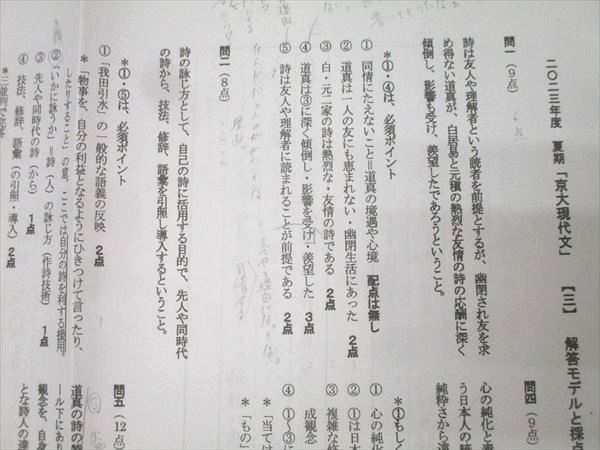 二〇二三年度 夏期「京大現代文」 【三】 解答モデルと採点
問一(9点)
詩は友人や理解者という読者を前提とするが、幽閉され友を求
め得ない道真が、白居易と元稹の熱烈な友情の詩の応酬に深く
傾倒し、影響も受け、羨望したであろうということ。
*①・④は、必須ポイント
① 同情にたえないこと=道真の境遇や心境 配点は無し
② 道真は一人の友にも恵まれない・幽閉生活にあった 2点
③ 白・元二家の詩は熱烈な・友情の詩である 2点
④ 道真は③に深く傾倒し・影響を受け・羨望した 3点
⑤ 詩は友人や理解者に読まれることが前提である 2点
問二(8点)
詩の詠じ方として、自己の詩に活用する目的で、先人や同時代
の詩から、技法、修辞、語彙を引照し導入するということ。
*①・⑤は、必須ポイント
① 「我田引水」の一般的な語義の反映 2点
*「物事を、自分の利益となるようにひきつけて言ったり、
したりすること」の意。ここでは自分の詩を利する援用。
② 「いかに詠うか」=詩(人)の詠じ方(作詩技術) 1点
③ 先人や同時代の詩(から) 1点
④ 技法、修辞、語彙(の引照・導入) 2点
*三並列で完答
問四(9点)
心の純化と素
う日本人の
純粋さから遠
*①もしく
① 心の純
② ①は日本
③ 複雑な
④ ①〜③に
成観念
*「当ては
*「もの」
問五(12点)
道真の詩の特
ール下にあり
観念を、自身
とな詩人の